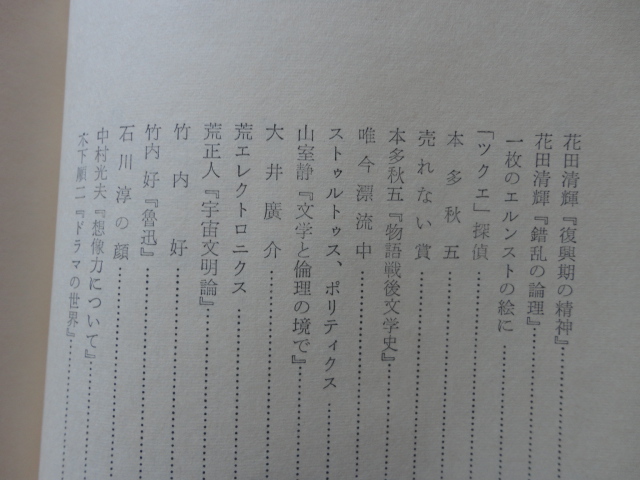 花田清輝『復興期の精神』
花田清輝『錯乱の論理』
一枚のエルンストの絵に
「ツクェ」探偵
本多秋五
売れない賞
本多秋五『物語戦後文学史』
唯今漂流中
ストゥルトゥス、ポリティクス
山室静『文学と倫理の境で』
大井廣介
荒エレクトロニクス
荒正人『宇宙文明論』
竹内好
竹内好『魯迅』
石川淳の顔
中村光夫『想像力について』
木下順二『ドラマの世界』